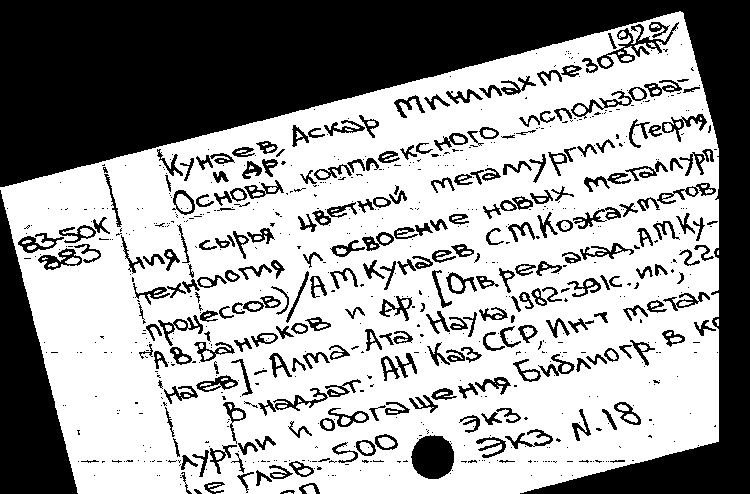 1929
Кунаев, Аскар Минлиахмезович.
и др.
Основы комплексного использова-
ния сырья цветной металлургии: (Теория,
технология и освоение новых металлург.
процессов) / А.М. Кунаев, С.М. Кожахметов,
А.В. Ванюков и др.; [Отв. ред. акад. А.М. Ку-
наев]. - Алма-Ата: Наука, 1982. - 391с., ил.; 22
В надзаг.: АН КазССР, Ин-т метал-
лургии и обогащения. Библиогр. в
глав. - 500 экз.
ЭКЗ. N.18
83-50К
283